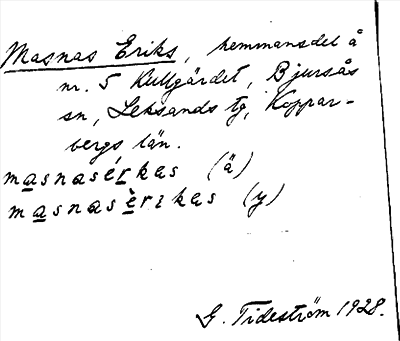 Masnas Eriks, hemmansdel å
nr. 5 Kullgärdet, Bjursås
sn, Leksands tg, Koppar-
bergs län.
masnasérkas (ä)
masnasèrikas (y)
G. Tideström 1928.